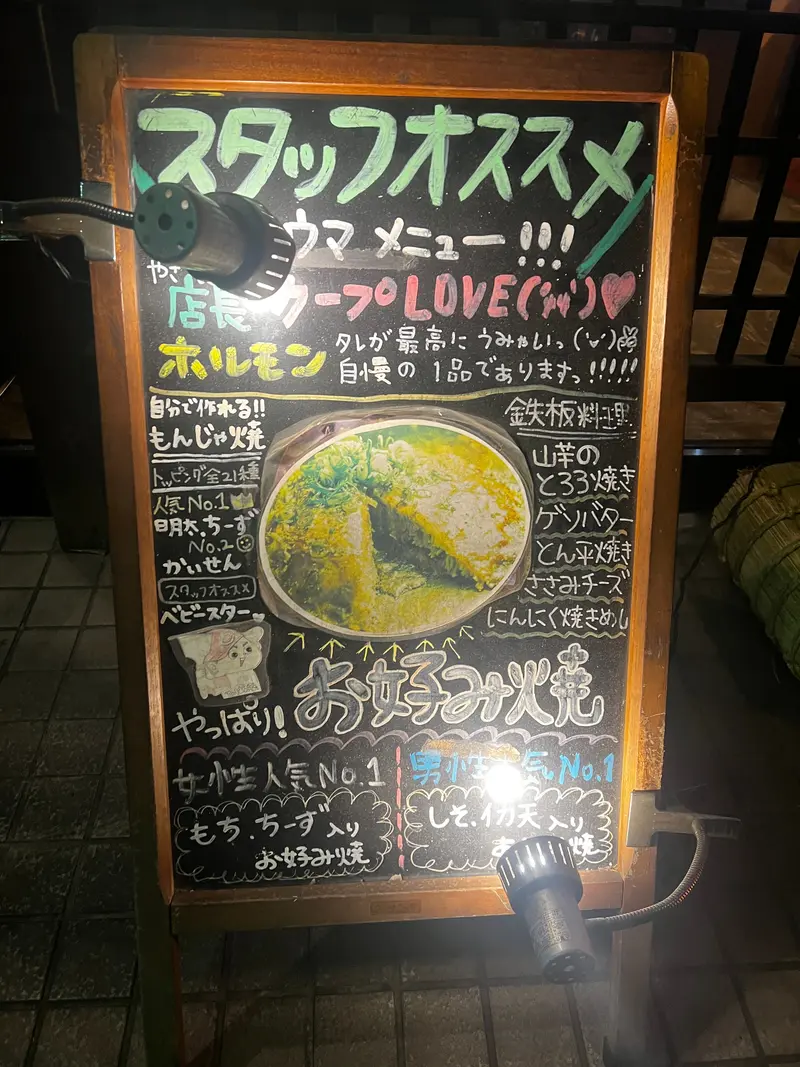 スタッフオススメ
ウマ メニュー!!!
やさ
店長 カープLOVE
ホルモン
タレが最高にうみゃいっ
自慢の1品でありますっ!!!!!
自分で作れる!!
もんじゃ焼
トッピング全21種
人気No.1
明太.ちーず
No.2
かいせん
スタッフオススメ
ベビースター
鉄板料理
山芋の
とろろ焼き
ゲソバター
とん平焼き
ささみチーズ
にんにく焼きめし
やっぱり!
お好み焼
女性人気No.1
もち.ちーず入り
お好み焼
男性 気No.1
しそ.イカ天入り
お 焼